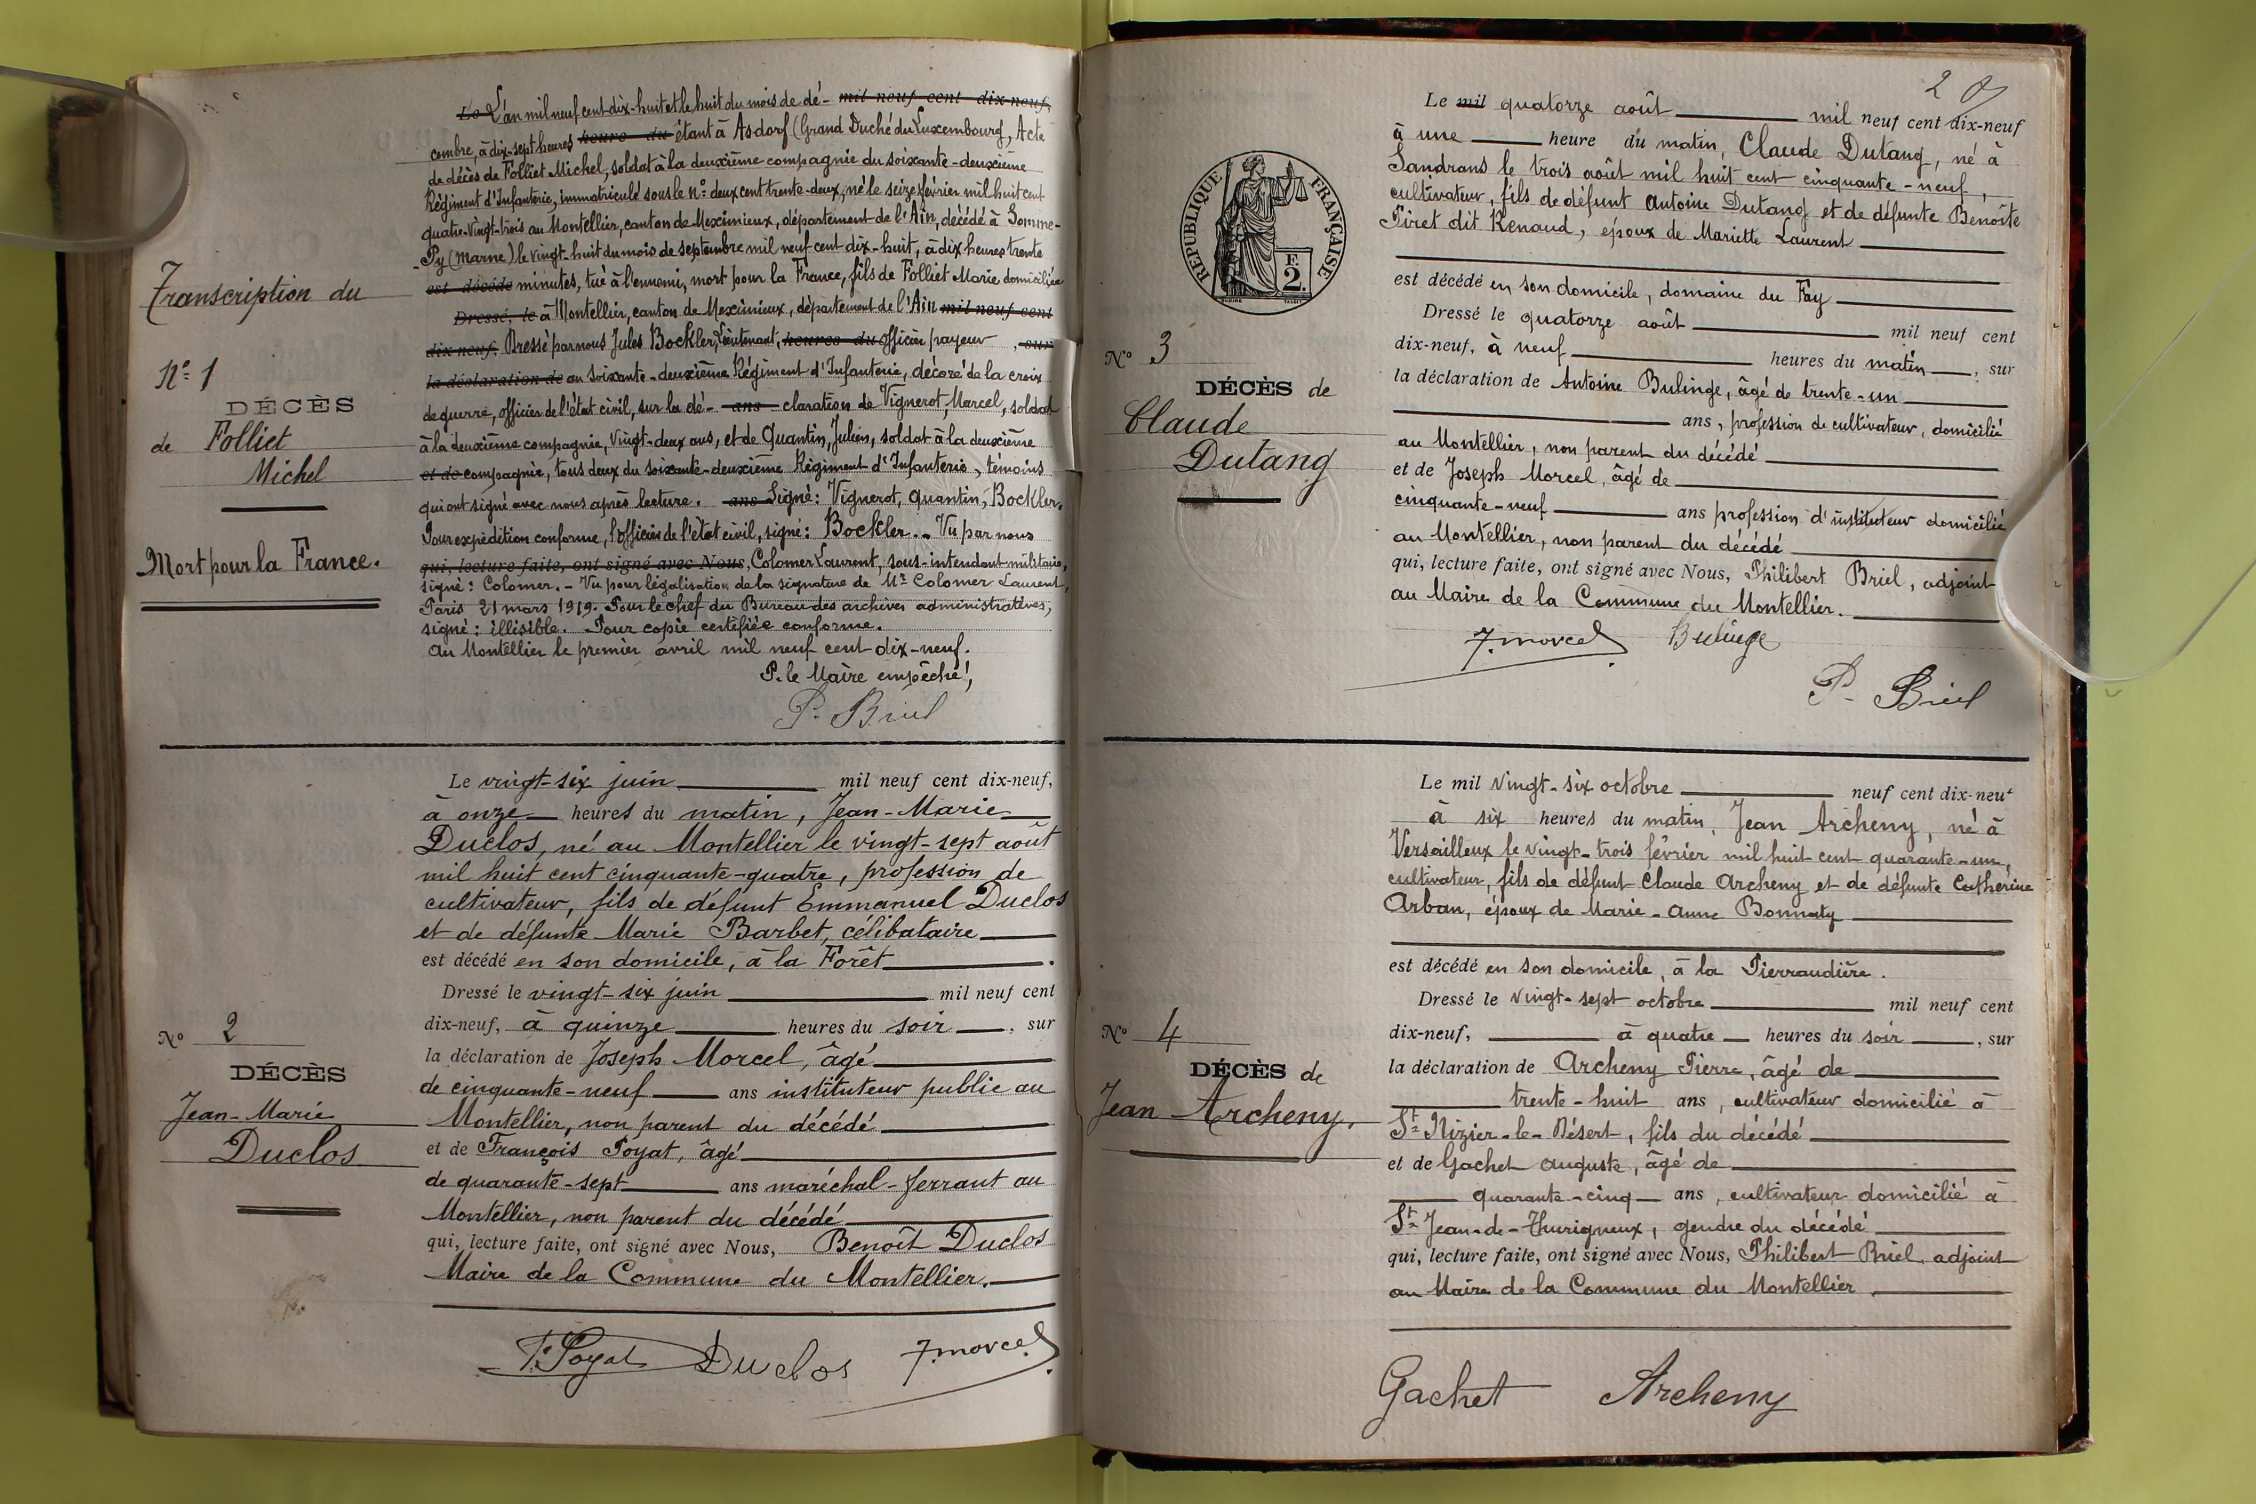 Le L'an mil neuf cent dix-huit et le huit du mois de dé- mil neuf cent dix-neuf,
cembre, à dix-sept heures heure du étant à Asdorf (Grand Duché du Luxembourg), Acte
de décès de Folliet Michel, soldat à la deuxième compagnie du soixante-deuxième
Régiment d'Infanterie, immatriculé sous le n° deux cent trente-deux, né le seize février mil huit cent
quatre-vingt-trois au Montellier, canton de Meximieux, département de l'Ain, décédé à Somme-
-Py (Marne) le vingt-huit du mois de septembre mil neuf cent dix-huit, à dix heures trente
est décédé minutes, tué à l'ennemi, mort pour la France, fils de Folliet Marie, domiciliée
Dressé, le à Montellier, canton de Meximieux, département de l'Ain mil neuf cent
dix neuf, Dressé par nous Jules Bockler, Lieutenant, heures du officier payeur , sur
la déclaration de au soixante-deuxième Régiment d'Infanterie, décoré de la croix
de guerre, officier de l'état civil, sur la dé- ans claration de Vignerot, Marcel, soldat
à la deuxième compagnie, vingt-deux ans, et de Quantin, Julien, soldat à la deuxième
et de compagnie, tous deux du soixante-deuxième Régiment d'Infanterie, témoins
qui ont signé avec nous après lecture. ans Signé: Vignerot, Quantin, Bockler.
Pour expédition conforme, l'officier de l'état civil, signé: Bockler. - Vu par nous
qui, lecture faite, ont signé avec Nous, Colomer Laurent, sous-intendant militaire,
signé: Colomer. - Vu pour légalisation de la signature de Mr Colomer Laurent,
Paris 21 mars 1919. Pour le chef du Bureau des archives administratives,
signé: illisible. Pour copie certifiée conforme.
Au Montellier le premier avril mil neuf cent dix-neuf.
P. le Maire empêché,
P. Briel
Transcription du
N° 1
DÉCÈS
de Folliet
Michel
Mort pour la France.
Le vingt-six juin mil neuf cent dix-neuf,
à onze heures du matin, Jean-Marie
Duclos, né au Montellier le vingt-sept août
mil huit cent cinquante-quatre, profession de
cultivateur, fils de défunt Emmanuel Duclos
et de défunte Marie Barbet, célibataire
est décédé en son domicile, à la Forêt .
Dressé le vingt-six juin mil neuf cent
dix-neuf, à quinze heures du soir , sur
la déclaration de Joseph Morcel, âgé
de cinquante-neuf ans instituteur public au
Montellier, non parent du décédé
et de François Poyat, âgé
de quarante-sept ans maréchal-ferrant au
Montellier, non parent du décédé
qui, lecture faite, ont signé avec Nous, Benoît Duclos
Maire de la Commune du Montellier.
N° 2
DÉCÈS
Jean-Marie
Duclos
F. Poyat Duclos J. morcel
2
RÉPUBLIQUE FRANÇAISE
F.
2.
Le mil quatorze août mil neuf cent dix-neuf
à une heure du matin, Claude Dutang, né à
Sandrans le trois août mil huit cent cinquante-neuf,
cultivateur, fils de défunt Antoine Dutang et de défunte Benoîte
Piret dit Renaud, époux de Mariette Laurent
est décédé en son domicile, domaine du Fay
Dressé le quatorze août mil neuf cent
dix-neuf, à neuf heures du matin , sur
la déclaration de Antoine Bulinge, âgé de trente-un
ans, profession de cultivateur, domicilié
au Montellier, non parent du décédé
et de Joseph Morcel, âgé de
cinquante-neuf ans profession d'instituteur domicilié
au Montellier, non parent du décédé
qui, lecture faite, ont signé avec Nous, Philibert Briel, adjoint
au Maire de la Commune du Montellier.
J. morcel Bulinge
P. Briel
N° 3
DÉCÈS de
Claude
Dutang
Le mil vingt-six octobre neuf cent dix-neuf
à six heures du matin, Jean Archeny, né à
Versailleux le vingt-trois février mil huit cent quarante-un,
cultivateur, fils de défunt Claude Archeny et de défunte Catherine
Arban, époux de Marie-Anne Bonnaty
est décédé en son domicile, à la Pierraudière.
Dressé le vingt-sept octobre mil neuf cent
dix-neuf, à quatre heures du soir , sur
la déclaration de Archeny Pierre, âgé de
trente-huit ans, cultivateur domicilié à
St Nizier-le-Désert, fils du décédé
et de Gachet Auguste, âgé de
quarante-cinq ans, cultivateur domicilié à
St Jean-de-Thurigneux, gendre du décédé
qui, lecture faite, ont signé avec Nous, Philibert Briel, adjoint
au Maire de la Commune du Montellier.
N° 4
DÉCÈS de
Jean Archeny.
Gachet Archeny